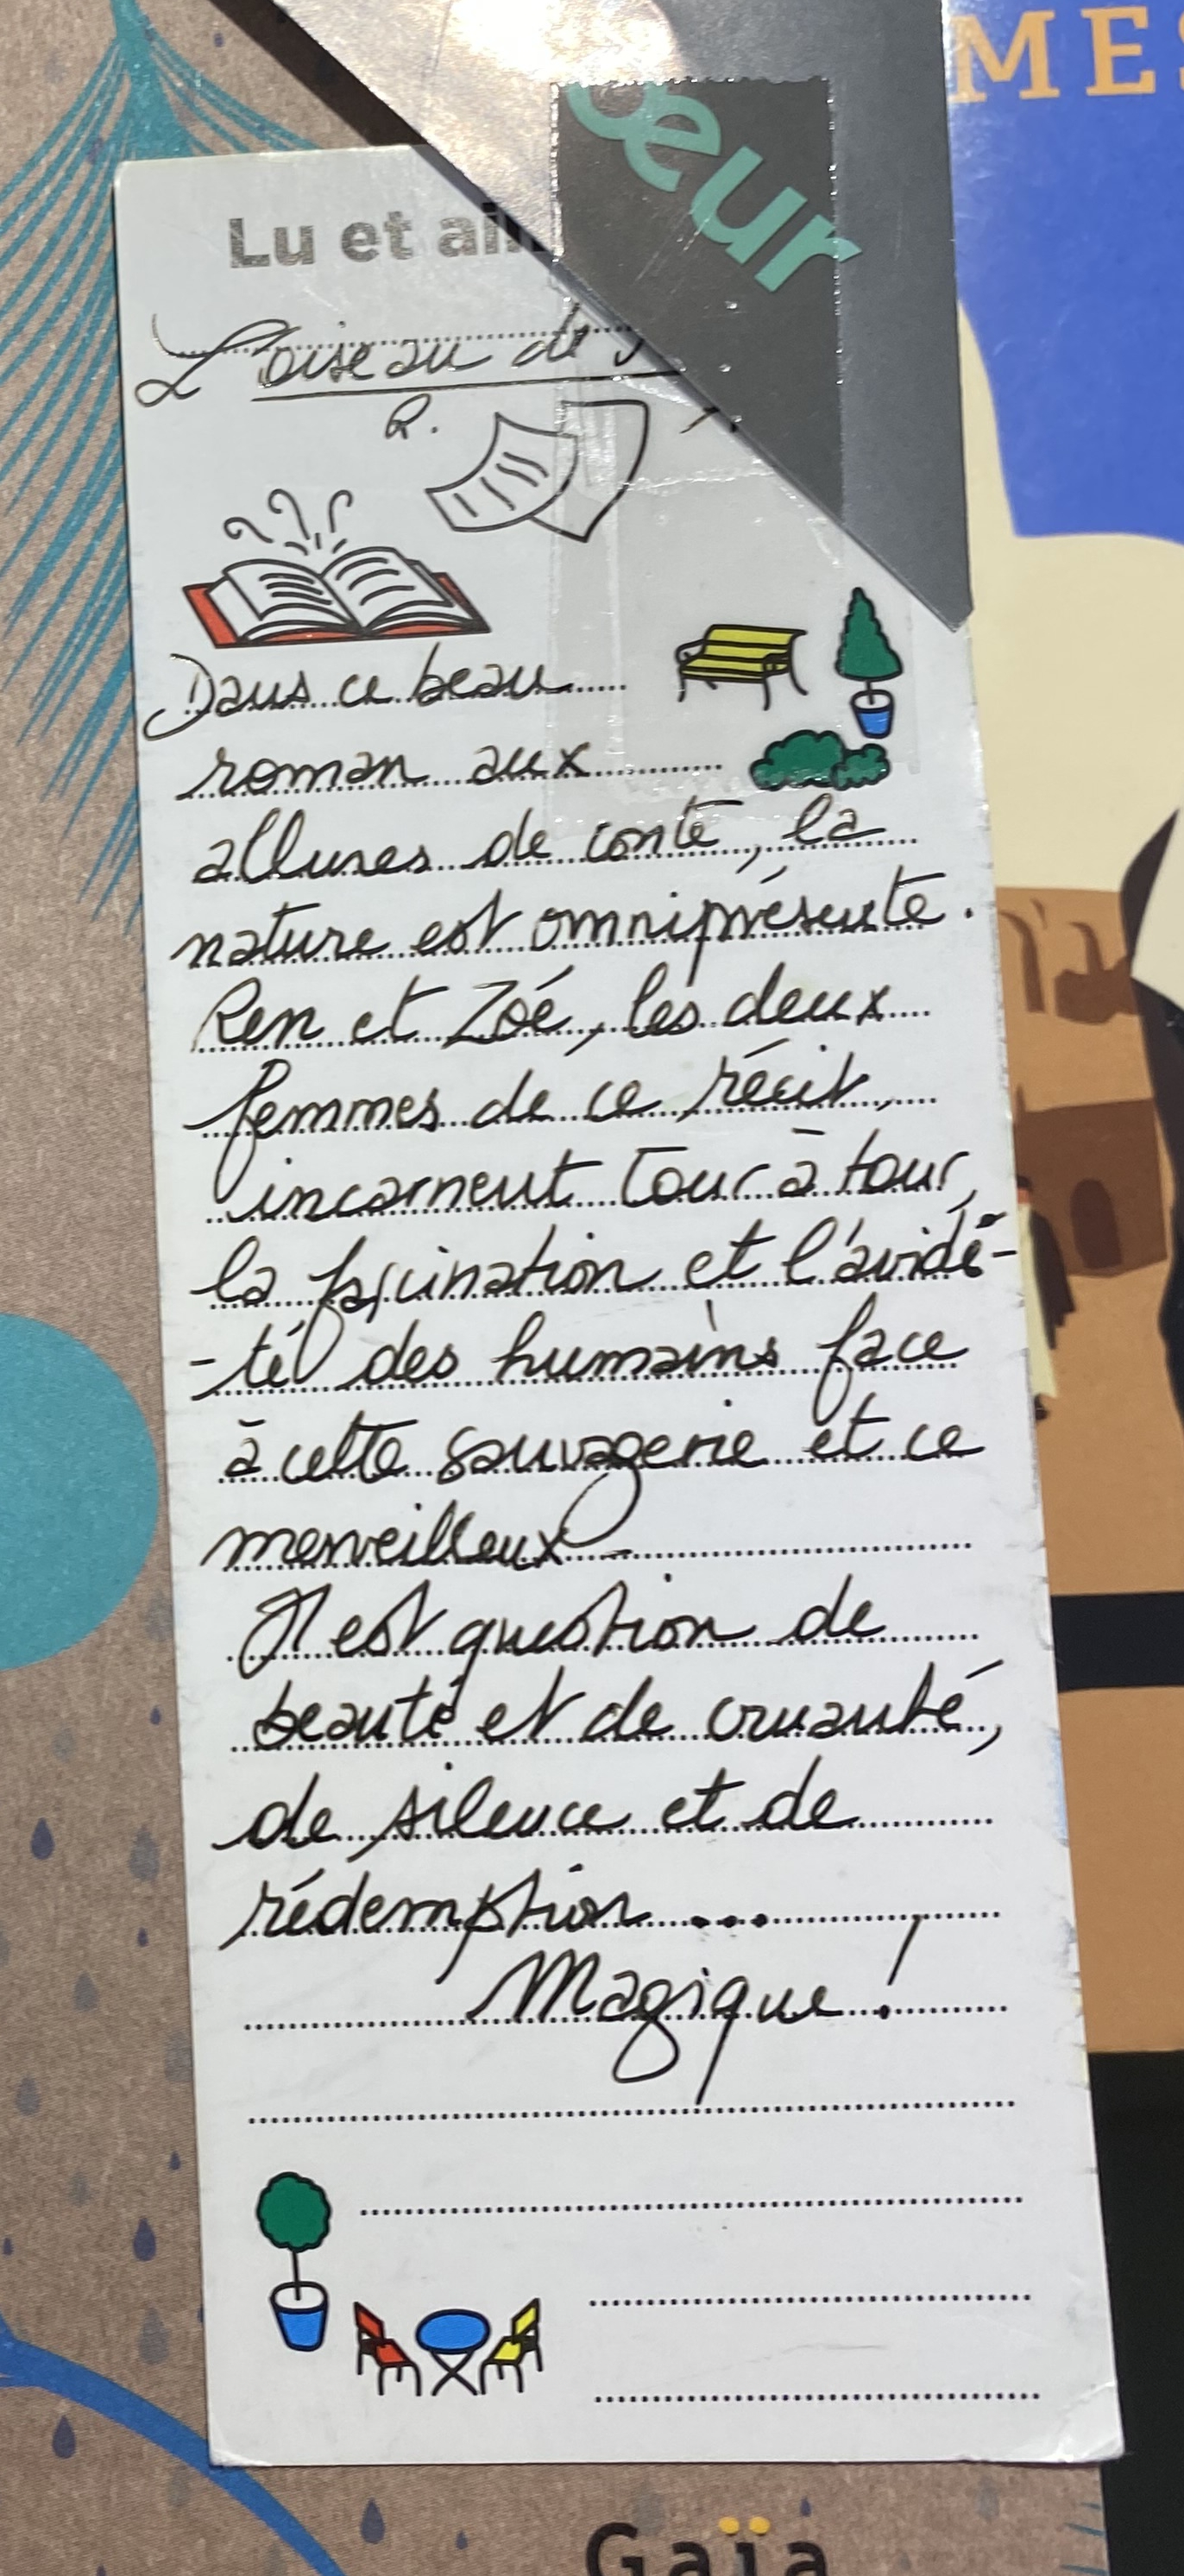 MES
œur
Lu et aim
L'oiseau de
R.
Dans ce beau
roman aux
allures de conte, la
nature est omniprésente.
Ren et Zoé, les deux
femmes de ce récit,
incarnent tour à tour,
la fascination et l'avidi-
-té des humains face
à cette sauvagerie et ce
merveilleux.
Il est question de
beauté et de cruauté,
de silence et de
rédemption ...
Magique !
Gaïa